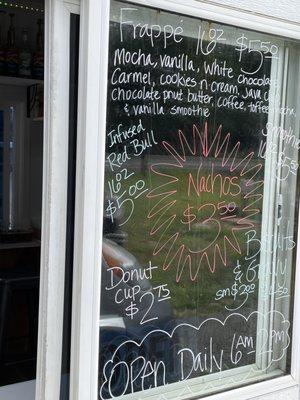 Frappé 16oz $5.50
Mocha, vanilla, white chocolate
Carmel, cookies n cream, Java
Chocolate pnut butter, coffee, toffee mocha,
& vanilla smoothie
Infused
Red Bull
16oz
$5.00
Smoothie
16oz
Nachos
$3.50
Biscuits
& Gravy
sm $3.00
Donut
cup
$2.75
Open Daily 6AM 7PM